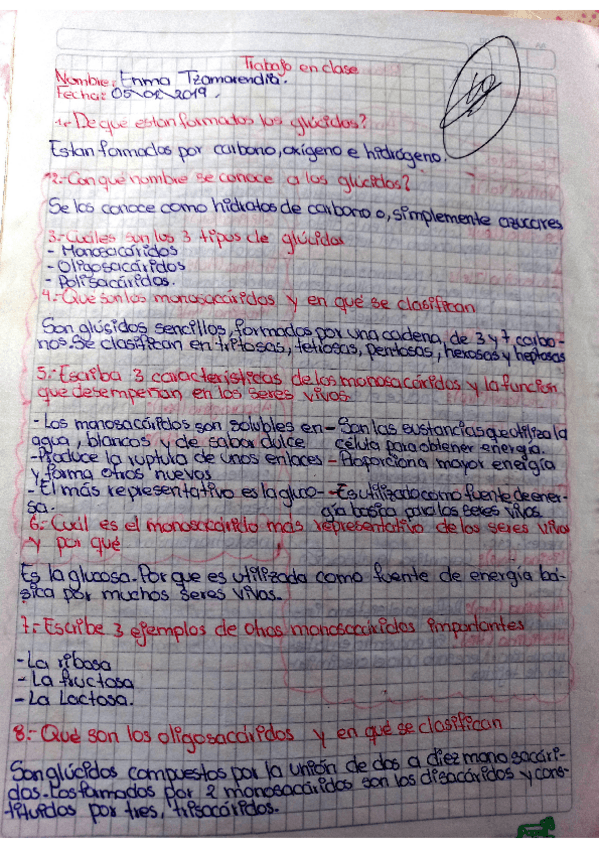 Trabajo en clase
Nombre: Enma Tzamarendia.
Fecha: 05-02-2019.
1.- De que estan formados los glúcidos?
Estan formados por carbono, oxígeno e hidrógeno.
2.- Con qué nombre se conoce a los glúcidos?
Se los conoce como hidratos de carbono o, simplemente azucares
3.- Cuáles son los 3 tipos de glúcidos
- Monosacáridos
- Oligosacáridos
- Polisacáridos.
4.- Qué son los monosacáridos y en qué se clasifican
Son glúsidos sencillos, formados por una cadena, de 3 y 7 carbo-
nos. Se clasifican en triosas, tetrosas, pentosas, hexosas y heptosas
5.- Escriba 3 características de los monosacáridos y la función
que desempeñan en los seres vivos.
- Los monosacáridos son solubles en - Son las sustancias que utiliza la
agua, blancos y de sabor dulce célula para obtener energía.
- Produce la ruptura de unos enlaces - Proporciona mayor energía
y forma otros nuevos
- El más representativo es la gluco- - Es utilizado como fuente de ener-
sa. gía basica para los seres vivos.
6.- Cuál es el monosacárido más representativo de los seres vivos
y por qué
Es la glucosa. Por que es utilizada como fuente de energía bá-
sica por muchos seres vivos.
7.- Escribe 3 ejemplos de otros monosacáridos importantes
- La ribosa
- La fructosa
- La Lactosa.
8.- Qué son los oligosacáridos y en qué se clasifican
Son glúcidos compuestos por la unión de dos a diez monosacári-
dos. Los formados por 2 monosacáridos son los disacáridos y cons-
tituidos por tres, trisacáridos.